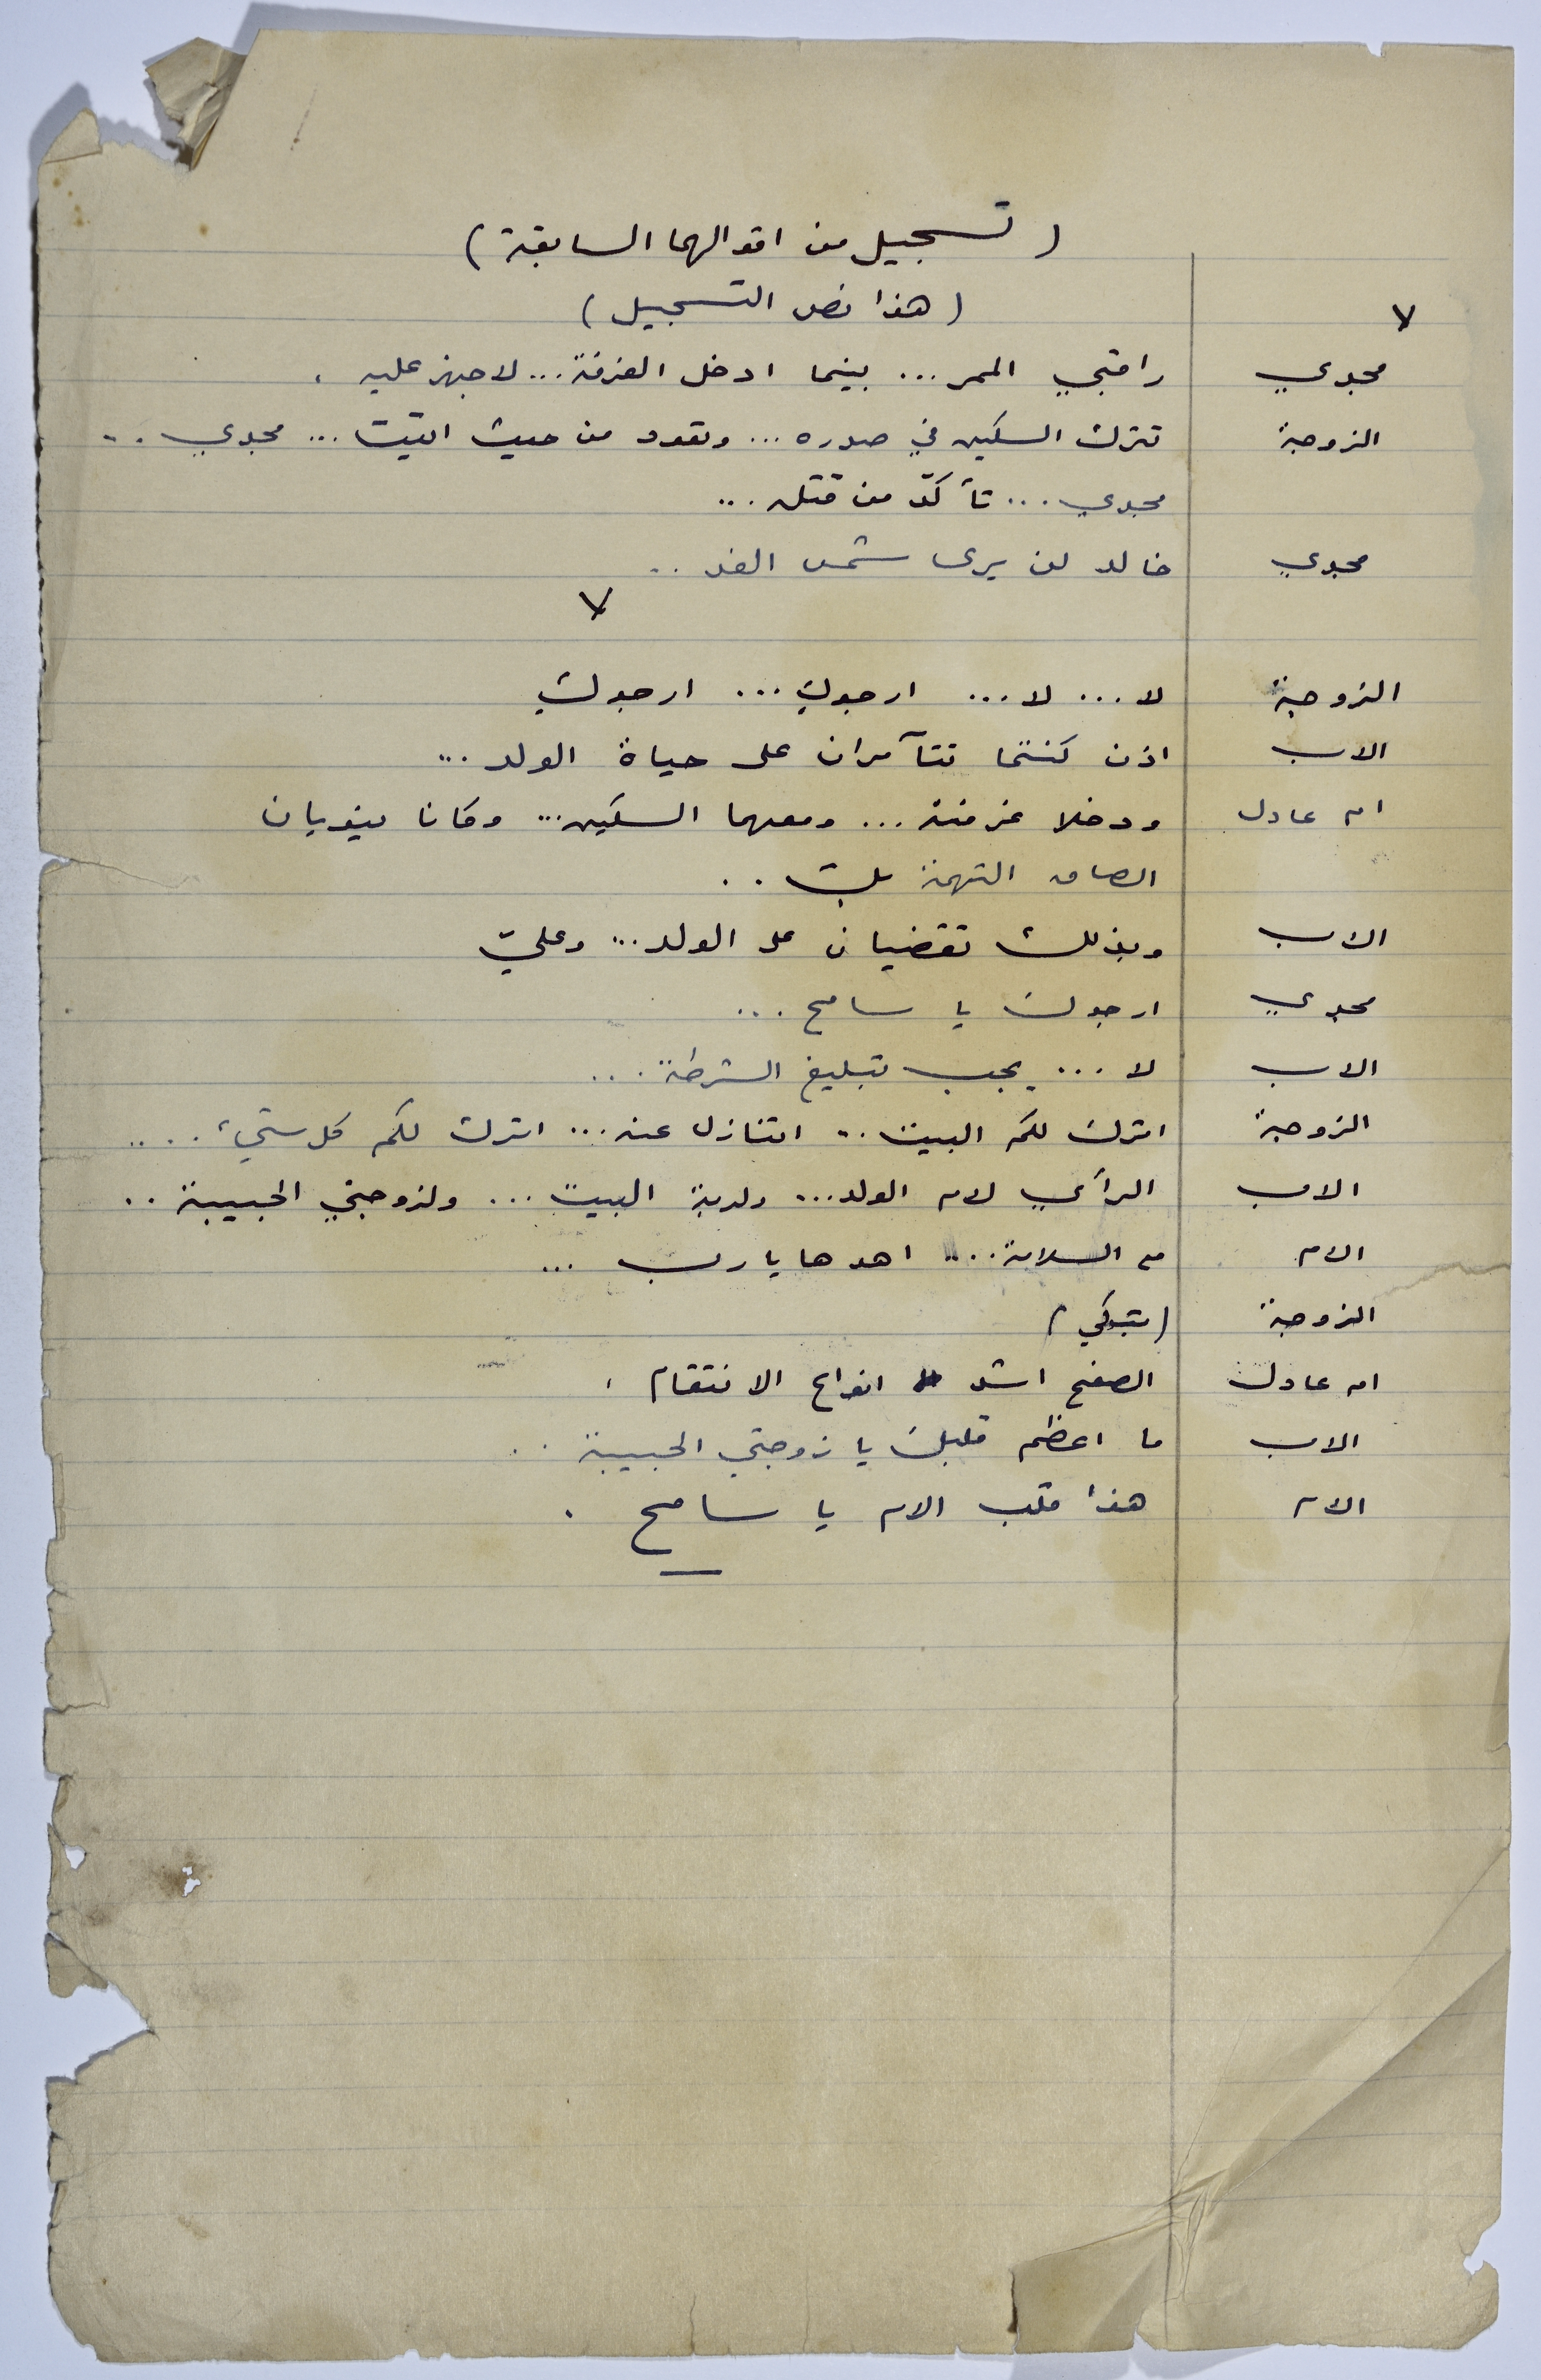 ( تسجيل من اقوالهما السابقة )
( هذا نص التسجيل )
مجدي راقبي الممر ... بينما ادخل الغرفة ... لاجهز عليه .
الزوجة تترك السكين في صدره ... وتعود من حيث اتيت ... مجدي ..
مجدي ... تأكدّ من قتله ...
مجدي خالد لن يرى شمس الغد ..
الزوجة لا ... لا ... ارجوك ... ارجوك
الاب اذن كنتما تتآمران على حياة الولد ...
ام عادل ودخلا غرفته ... ومعهما السكين ... وكانا ينويان
الصاق التهمة بك ..
الاب وبذلك تقضيان على الولد ... وعليّ
مجدي ارجوك يا سامح ...
الاب لا ... يجب تبليغ الشرطة ...
الزوجة اترك لكم البيت .. اتنازل عنه ... اترك لكم كل شيء ....
الاب الرأي لام الولد ... ولربة البيت ... ولزوجتي الحبيبة ..
الام مع السلامة ... اهدها يا رب ...
الزوجة ( تبكي )
ام عادل الصفح اشد انواع الانتقام .
الاب ما اعظم قلبك يا زوجتي الحبيبة ..
الام هذا قلب الام يا سامح .